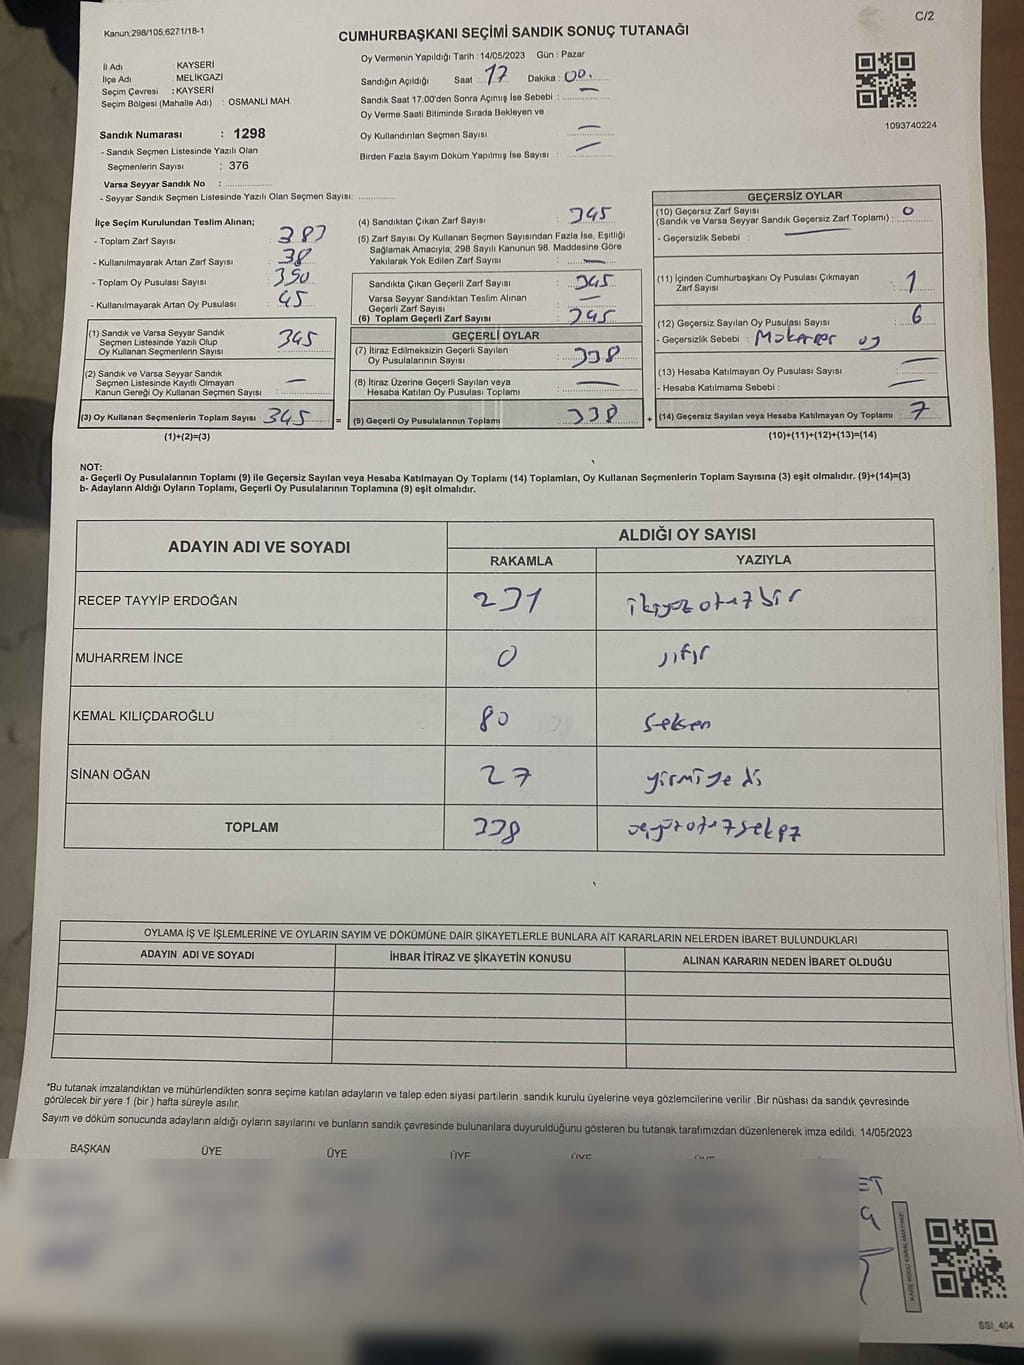 C/2
Kanun,298/105,6271/18-1
CUMHURBAŞKANI SEÇİMİ SANDIK SONUÇ TUTANAĞI
İl Adı : KAYSERİ
İlçe Adı : MELİKGAZİ
Seçim Çevresi : KAYSERİ
Seçim Bölgesi (Mahalle Adı) : OSMANLI MAH.
Sandık Numarası : 1298
- Sandık Seçmen Listesinde Yazılı Olan
Seçmenlerin Sayısı : 376
Varsa Seyyar Sandık No :
- Seyyar Sandık Seçmen Listesinde Yazılı Olan Seçmen Sayısı:
Oy Vermenin Yapıldığı Tarih : 14/05/2023 Gün : Pazar
Sandığın Açıldığı Saat : 17 Dakika : 00.
Sandık Saat 17:00'den Sonra Açımış İse Sebebi : —
Oy Verme Saati Bitiminde Sırada Bekleyen ve
Oy Kullandırılan Seçmen Sayısı —
Birden Fazla Sayım Döküm Yapılmış İse Sayısı : —
1093740224
İlçe Seçim Kurulundan Teslim Alınan;
- Toplam Zarf Sayısı : 383
- Kullanılmayarak Artan Zarf Sayısı : 38
- Toplam Oy Pusulası Sayısı : 390
- Kullanılmayarak Artan Oy Pusulası : 45
(1) Sandık ve Varsa Seyyar Sandık
Seçmen Listesinde Yazılı Olup
Oy Kullanan Seçmenlerin Sayısı : 345
(2) Sandık ve Varsa Seyyar Sandık
Seçmen Listesinde Kayıtlı Olmayan
Kanun Gereği Oy Kullanan Seçmen Sayısı : —
(3) Oy Kullanan Seçmenlerin Toplam Sayısı 345
(1)+(2)=(3)
(4) Sandıktan Çıkan Zarf Sayısı : 345
(5) Zarf Sayısı Oy Kullanan Seçmen Sayısından Fazla İse, Eşitliği
Sağlamak Amacıyla; 298 Sayılı Kanunun 98. Maddesine Göre
Yakılarak Yok Edilen Zarf Sayısı : —
Sandıkta Çıkan Geçerli Zarf Sayısı : 345
Varsa Seyyar Sandıktan Teslim Alınan
Geçerli Zarf Sayısı : —
(6) Toplam Geçerli Zarf Sayısı : 345
GEÇERLİ OYLAR
(7) İtiraz Edilmeksizin Geçerli Sayılan
Oy Pusulalarının Sayısı : 338
(8) İtiraz Üzerine Geçerli Sayılan veya
Hesaba Katılan Oy Pusulası Toplamı : —
= (9) Geçerli Oy Pusulalarının Toplamı : 338
GEÇERSİZ OYLAR
(10) Geçersiz Zarf Sayısı
(Sandık ve Varsa Seyyar Sandık Geçersiz Zarf Toplamı) : 0
- Geçersizlik Sebebi : —
(11) İçinden Cumhurbaşkanı Oy Pusulası Çıkmayan
Zarf Sayısı : 1
(12) Geçersiz Sayılan Oy Pusulası Sayısı : 6
- Geçersizlik Sebebi : oy
(13) Hesaba Katılmayan Oy Pusulası Sayısı : —
- Hesaba Katılmama Sebebi : —
+ (14) Geçersiz Sayılan veya Hesaba Katılmayan Oy Toplamı : 7
(10)+(11)+(12)+(13)=(14)
NOT:
a- Geçerli Oy Pusulalarının Toplamı (9) ile Geçersiz Sayılan veya Hesaba Katılmayan Oy Toplamı (14) Toplamları, Oy Kullanan Seçmenlerin Toplam Sayısına (3) eşit olmalıdır. (9)+(14)=(3)
b- Adayların Aldığı Oyların Toplamı, Geçerli Oy Pusulalarının Toplamına (9) eşit olmalıdır.
ADAYIN ADI VE SOYADI ALDIĞI OY SAYISI
RAKAMLA YAZIYLA
RECEP TAYYİP ERDOĞAN 231 ikiyüz otuz bir
MUHARREM İNCE 0 sıfır
KEMAL KILIÇDAROĞLU 80 seksen
SİNAN OĞAN 27 yirmi yedi
TOPLAM 338 üçyüz otuz sekiz
OYLAMA İŞ VE İŞLEMLERİNE VE OYLARIN SAYIM VE DÖKÜMÜNE DAİR ŞİKAYETLERLE BUNLARA AİT KARARLARIN NELERDEN İBARET BULUNDUKLARI
ADAYIN ADI VE SOYADI İHBAR İTİRAZ VE ŞİKAYETİN KONUSU ALINAN KARARIN NEDEN İBARET OLDUĞU
*Bu tutanak imzalandıktan ve mühürlendikten sonra seçime katılan adayların ve talep eden siyasi partilerin sandık kurulu üyelerine veya gözlemcilerine verilir .Bir nüshası da sandık çevresinde
görülecek bir yere 1 (bir ) hafta süreyle asılır.
Sayım ve döküm sonucunda adayların aldığı oyların sayılarını ve bunların sandık çevresinde bulunanlara duyurulduğunu gösteren bu tutanak tarafımızdan düzenlenerek imza edildi. 14/05/2023
BAŞKAN ÜYE ÜYE ÜYE ÜYE
SSI_404